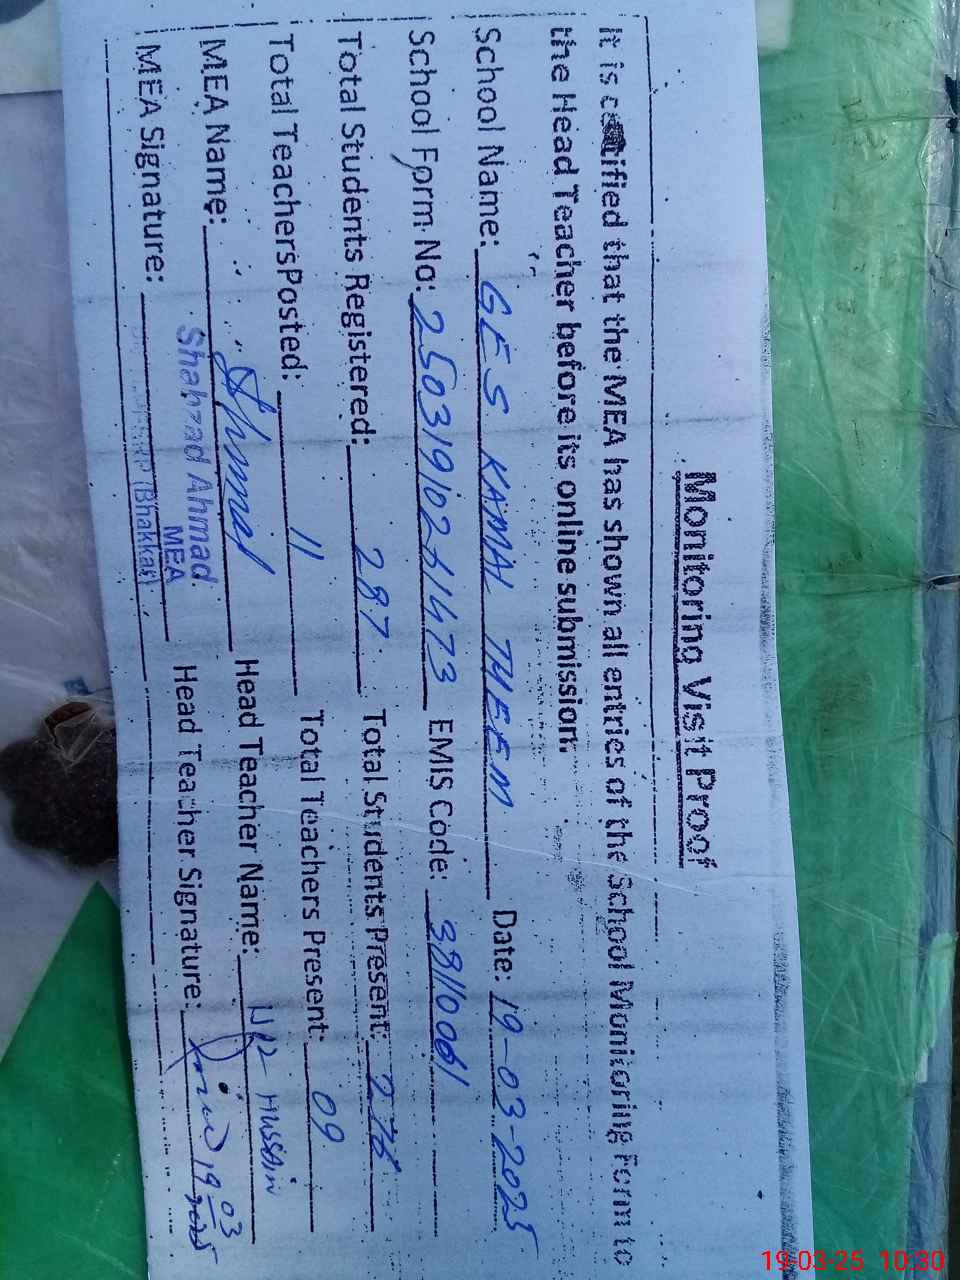 Monitoring Visit Proof
It is certified that the MEA has shown all entries of the School Monitoring Form to
the Head Teacher before its online submission.
School Name: GES KAMAL THEEM Date: 19-03-2025
School Form No: EMIS Code: 38110061
Total Students Registered: 287 Total Students Present:
Total Teachers Posted: 11 Total Teachers Present: 09
MEA Name: Head Teacher Name: Hussain
Shahzad Ahmad
MEA
MEA Signature: (Bhakkar) Head Teacher Signature: 19/03/2025
19-03-25 10:30